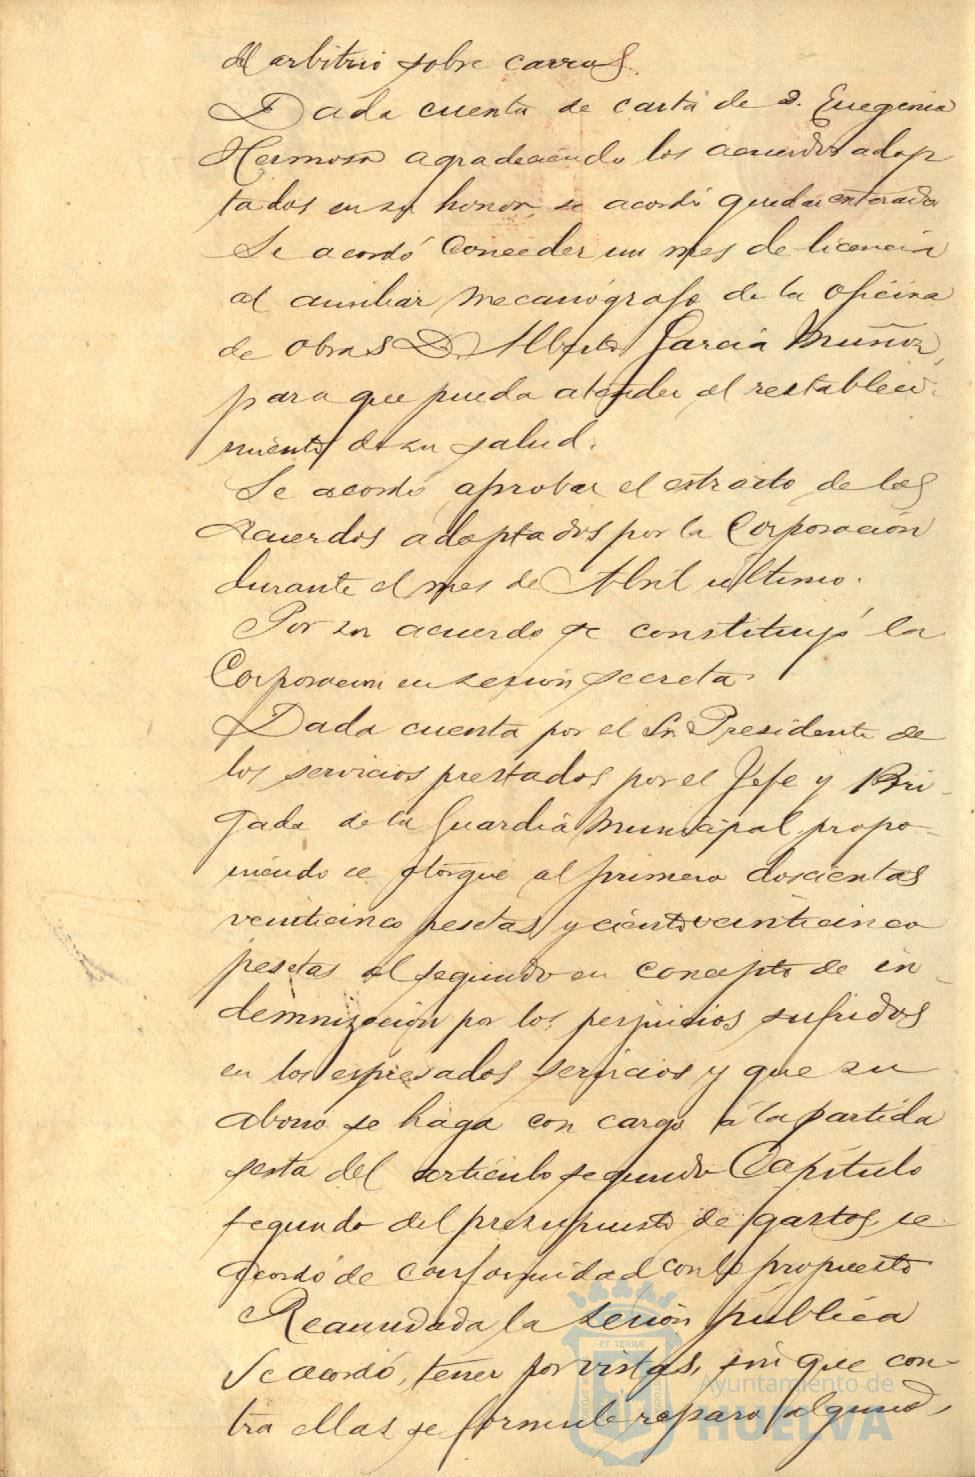 del arbitrio sobre carros.
Dada cuenta de carta de D. Eugenio
Hermoso agradeciendo los acuerdos adop
tados en su honor, se acordó quedar enterado
Se acordó conceder un mes de licencia
al auxiliar mecanógrafo de la oficina
de obras D. Alberto García Muñoz,
para que pueda atender al restableci-
miento de su salud.
Se acordó aprobar el extracto de los
acuerdos adoptados por la Corporación
durante el mes de Abril último.
Por su acuerdo se constituyó la
Corporación en sesión secreta.
Dada cuenta por el Sr. Presidente de
los servicios prestados por el Jefe y Bri-
gada de la Guardia Municipal propo-
niendo se otorgue al primero doscientas
veinticinco pesetas y ciento veinticinco
pesetas al segundo en concepto de in-
demnización por los perjuicios sufridos
en los expresados servicios y que su
abono se haga con cargo á la partida
sesta del artículo segundo Capítulo
segundo del presupuesto de gastos, se
acordó de conformidad con lo propuesto
Reanudada la sesión pública
Se acordó, tener por vistas, sin que con-
tra ellas se formule reparo alguno,
ET TERRAE
Ayuntamiento de
HUELVA